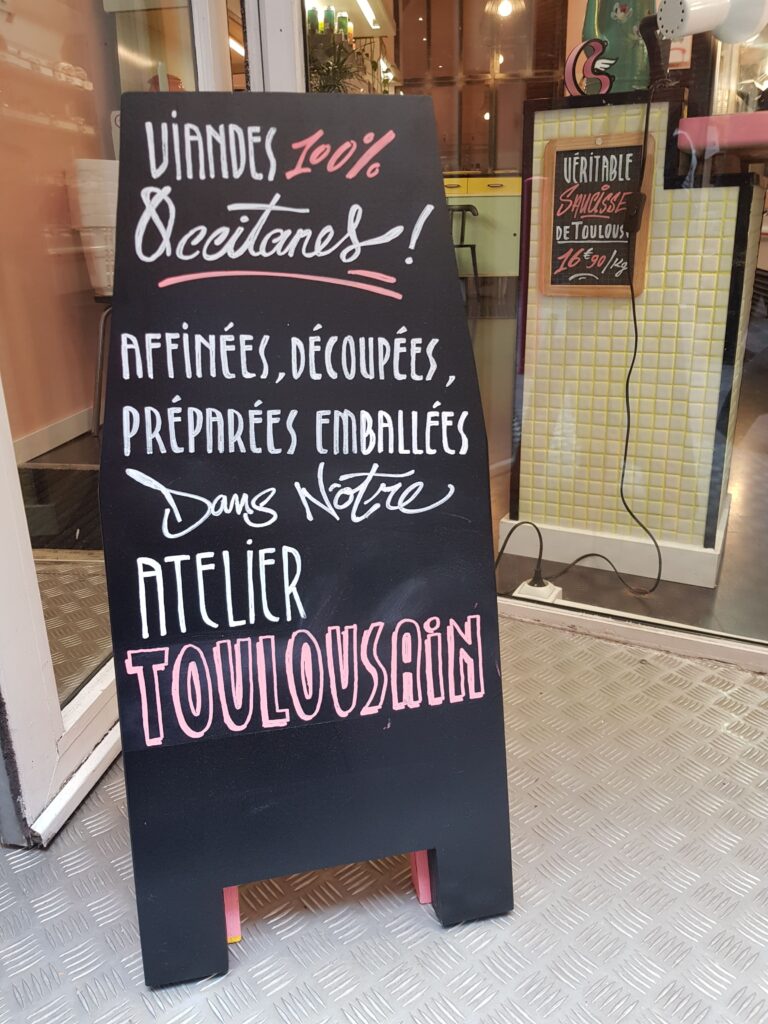 VIANDES 100%
Occitanes !
AFFINÉES, DÉCOUPÉES,
PRÉPARÉES EMBALLÉES
Dans Nôtre
ATELIER
TOULOUSAIN
VÉRITABLE
SAUCISSE
DE TOULOUSE
16€90/Kg